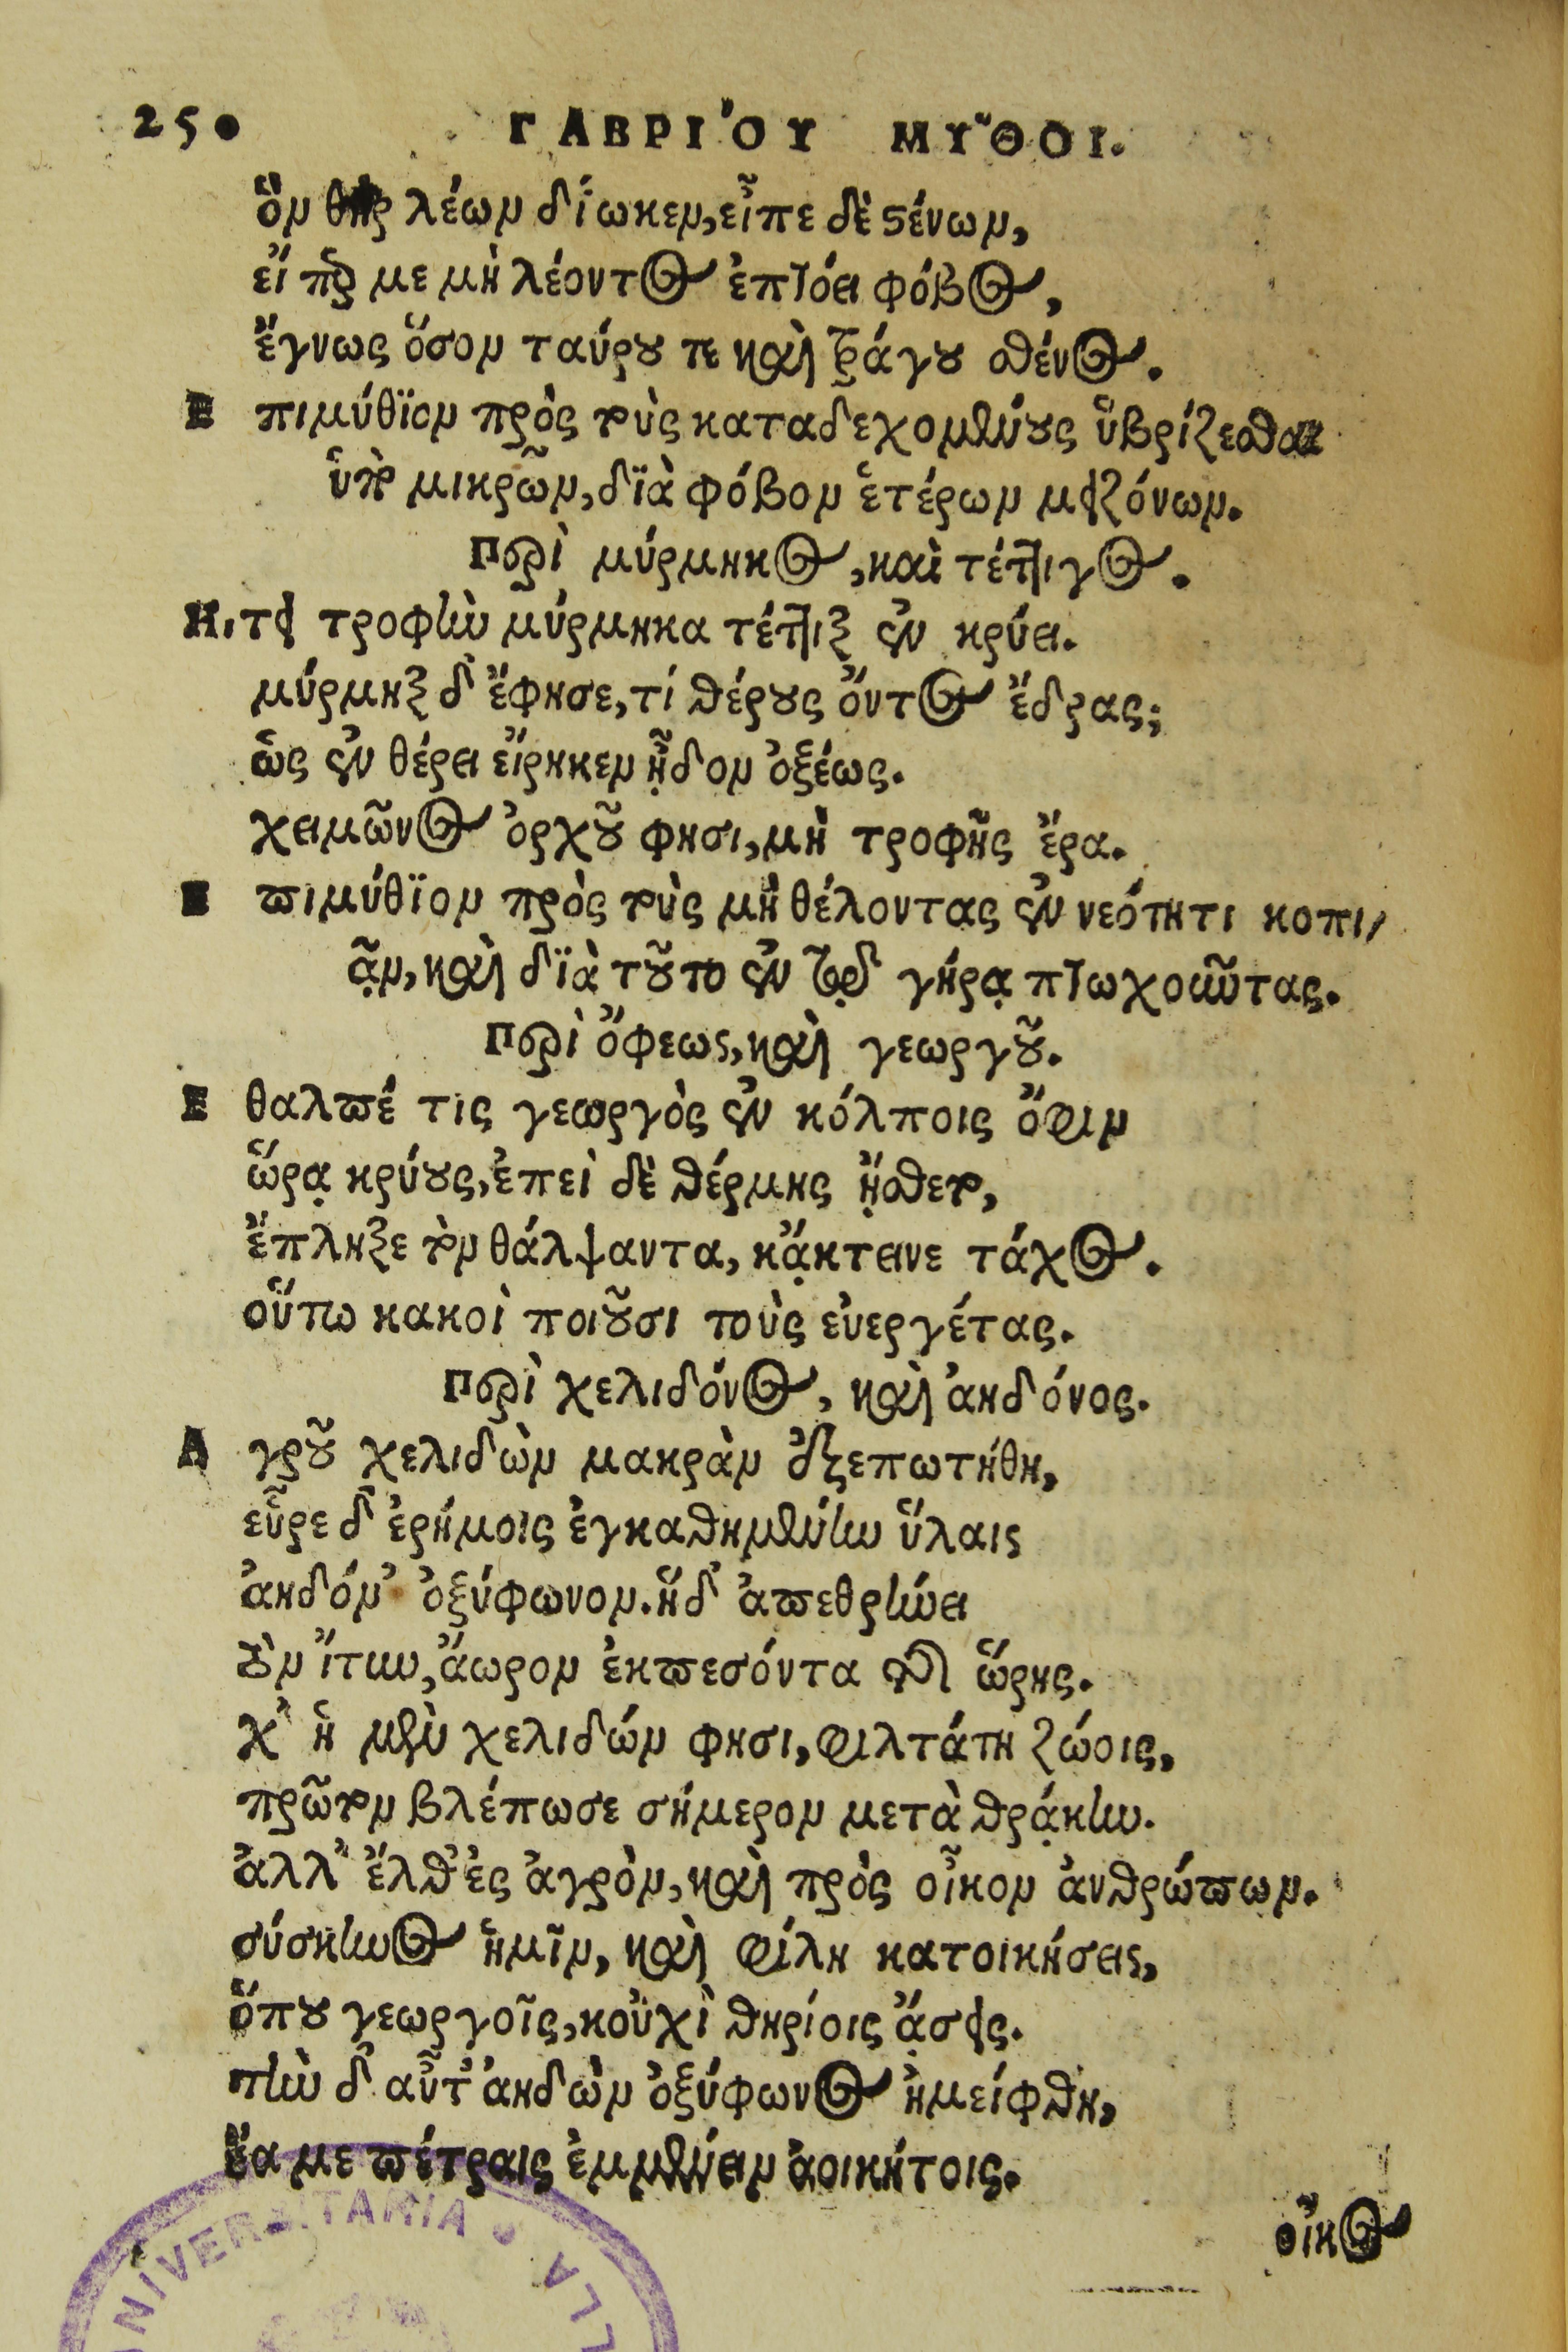 250 ΓΑΒΡΙ´ΟΥ ΜΥ῀ΘΟΙ.
ὃν θὴρ λέων δίωκεν, εἶπε δὲ στένων,
εἴ περ με μὴ λέοντος ἐπτόει φόβος,
ἔγνως ὅσον ταύρου τε καὶ τράγου σθένος.
Ε πιμύθϊον πρὸς τοὺς καταδεχομένους ὑβρίζεσθαι
ὑπὸ μικρῶν, δϊὰ φόβον ἑτέρων μειζόνων.
Περὶ μύρμηκος, καὶ τέττιγος.
Η, τει τροφὴν μύρμηκα τέττιξ ἐν κρύει.
μύρμηξ δ' ἔφησε, τί θέρους ὄντος ἔδρας;
ὡς ἐν θέρει εἴρηκεν ᾖδον ὀξέως.
χειμῶνος ὀρχοῦ φησι, μὴ τροφῆς ἔρα.
Ε πιμύθϊον πρὸς τοὺς μὴ θέλοντας ἐν νεότητι κοπι/
ᾷν, καὶ δϊὰ τοῦτο ἐν τῷ γήρᾳ πτωχοῦντας.
Περὶ ὄφεως, καὶ γεωργοῦ.
Ε θαλπέ τις γεωργὸς ἐν κόλποις ὄφιν
ὥρᾳ κρύους, ἐπεὶ δὲ θέρμης ᾔσθετο,
ἔπληξε τὸν θάλψαντα, κᾄκτεινε τάχος.
οὕτω κακοὶ ποιοῦσι τοὺς εὐεργέτας.
Περὶ χελιδόνος, καὶ ἀηδόνος.
Α γροῦ χελιδὼν μακρὰν ἐξεπωτήθη,
εὗρε δ' ἐρήμοις ἐγκαθημένην ὕλαις
ἀηδόν' ὀξύφωνον. ἡ δ' ἀπεθρήνει
τὸν ἴτυν, ἄωρον ἐκπεσόντα τῆς ὥρης.
χ' ἡ μὲν χελιδών φησι, φιλτάτη ζώοις,
πρῶτον βλέπωσε σήμερον μετὰ θρᾴκην.
ἀλλ' ἔλθ' ἐς ἀγρὸν, καὶ πρὸς οἶκον ἀνθρώπων.
σύσκηνος ἡμῖν, καὶ φίλη κατοικήσεις,
ὅπου γεωργοῖς, κοὐχὶ θηρίοις ᾄσεις.
τὴν δ' αὖτ' ἀηδὼν ὀξύφωνος ἠμείφθη,
ἔα με πέτραις ἐμμένειν ἀοικήτοις.
οἶκος
NIVERSITARIA
LLA